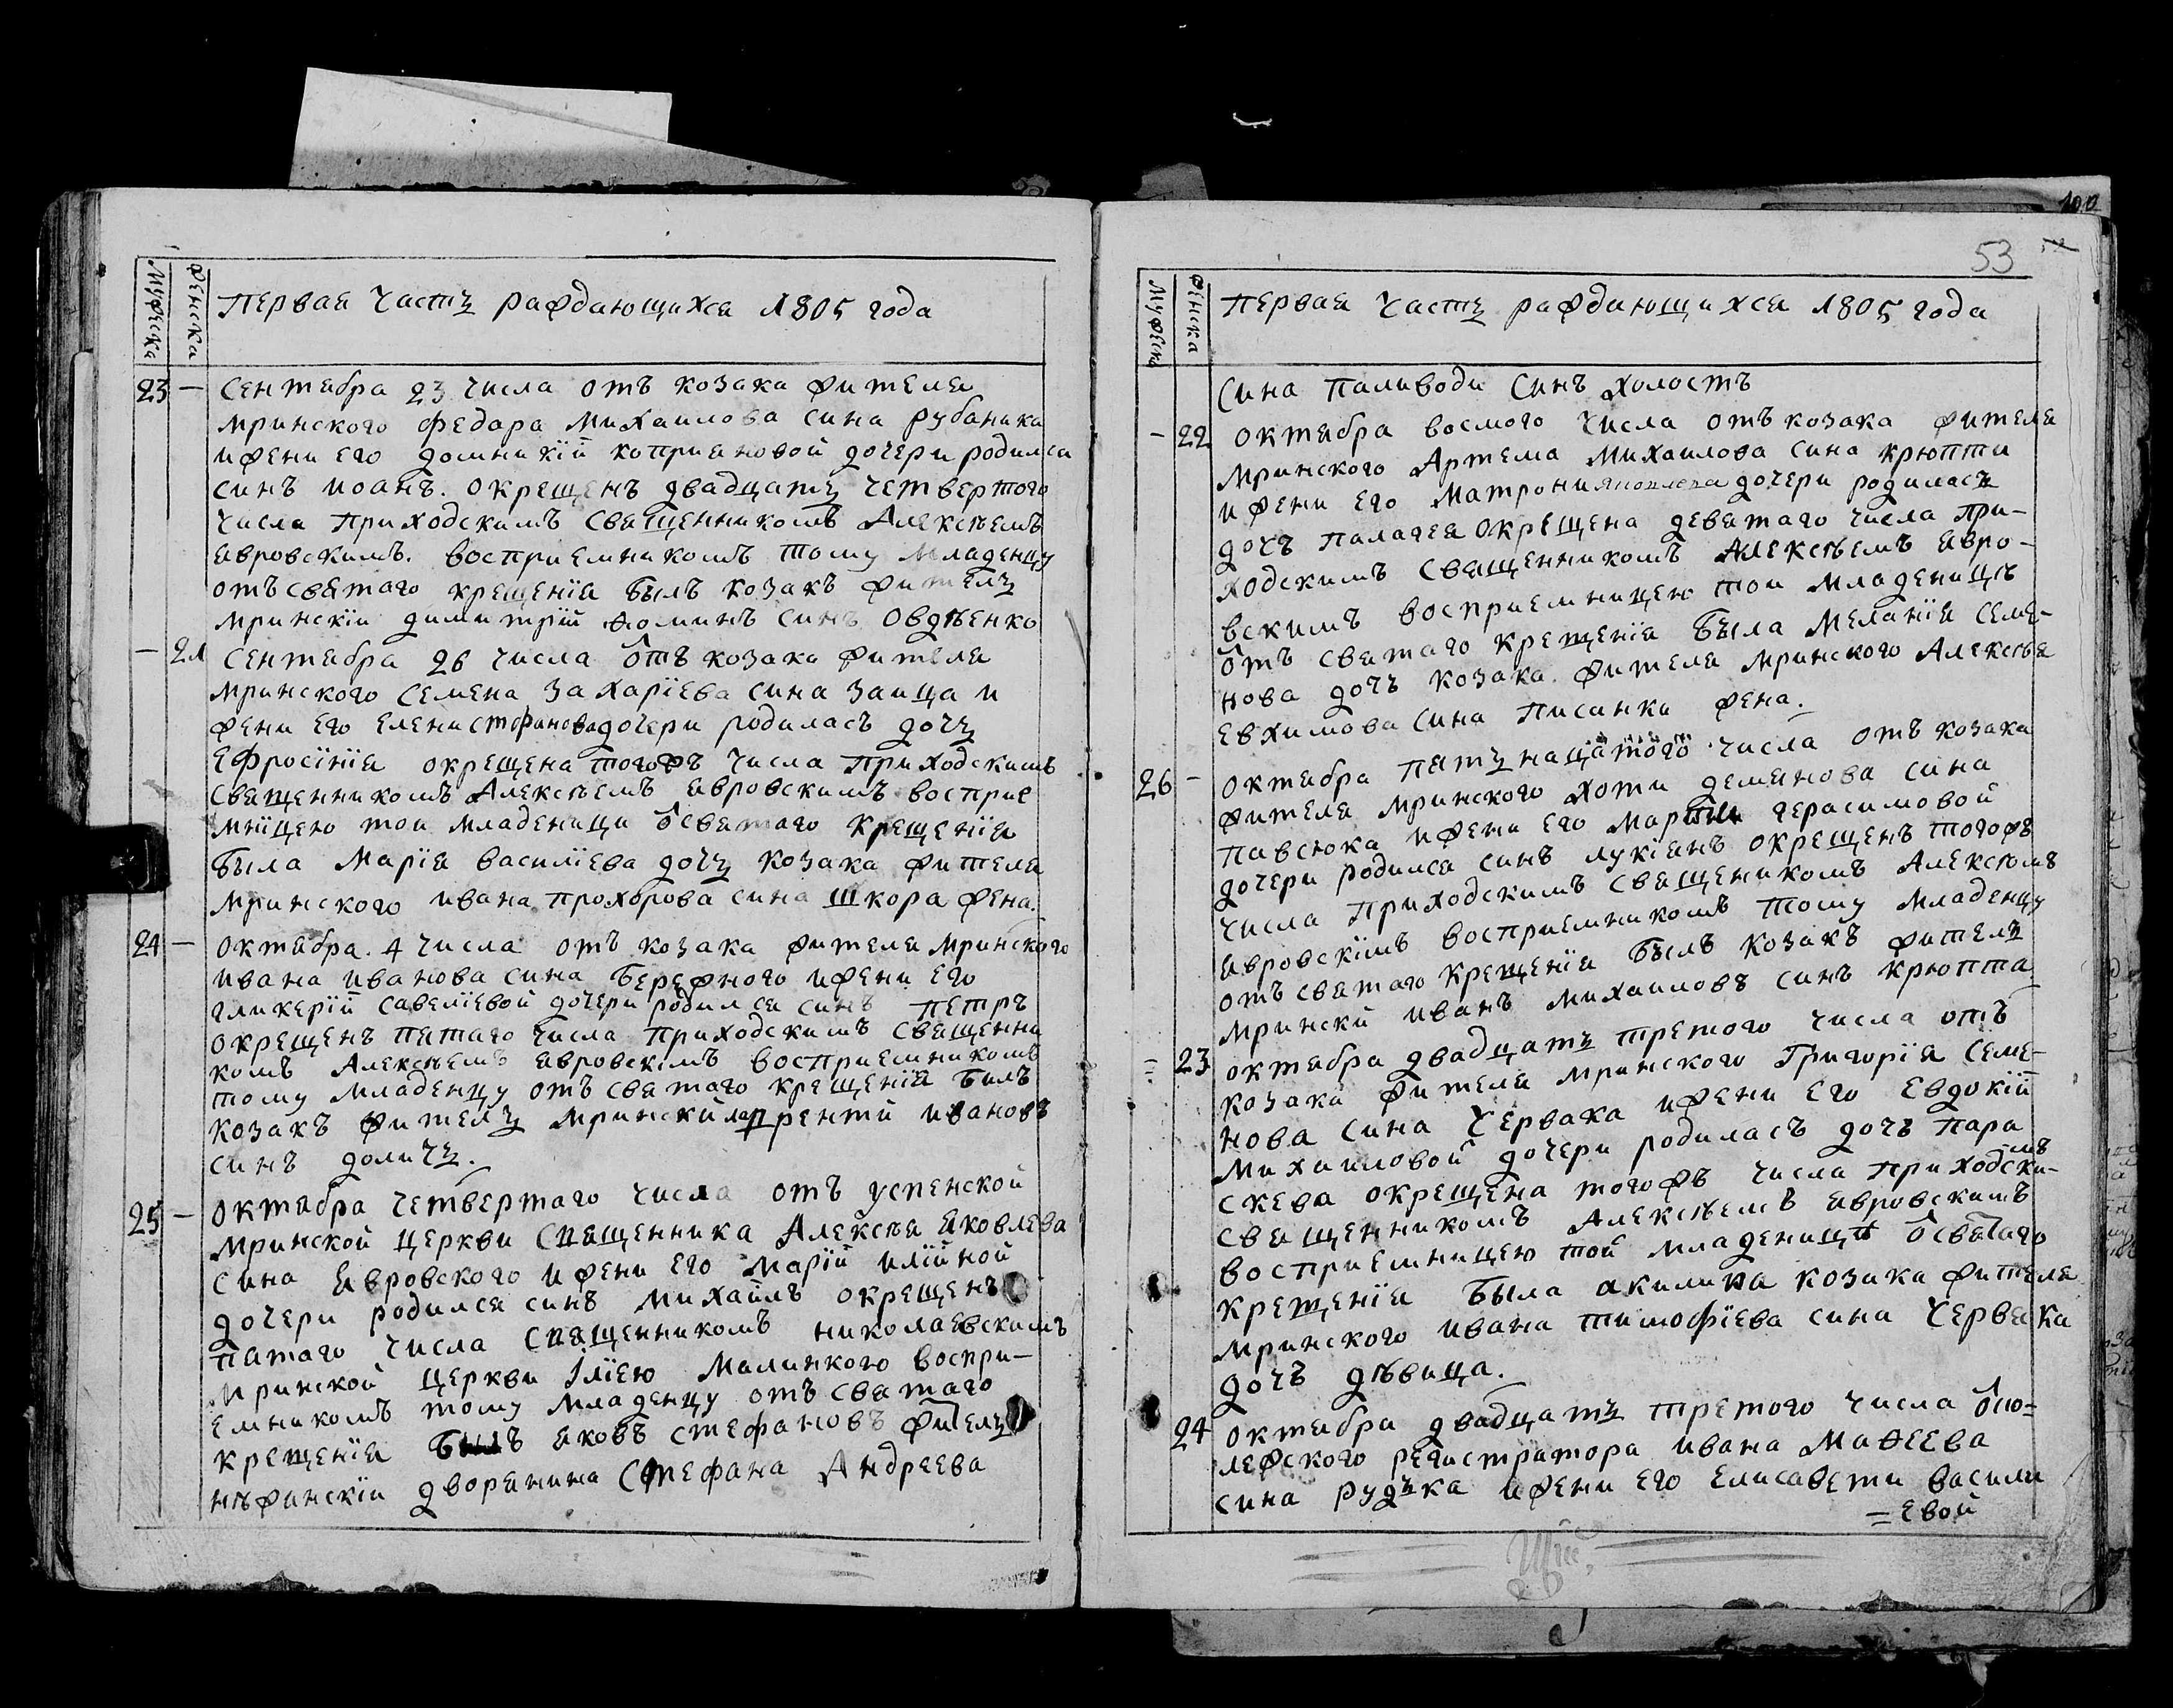 Мужеска
Женска
Первая часть раждающихся 1805 года
23 — Сентября 23 числа отъ козака жителя
мринского федора михаилова сина рубаника
и жени его домникій киприяновой дочери родился
синъ иоанъ. окрещенъ двадцать четвертого
числа приходскимъ священникомъ Алексѣемъ
явровскимъ. восприемникомъ тому младенцу
отъ святаго крещенїя былъ козакъ житель
мринскїи димитрїй ѳоминъ синъ Овдѣенко
— 21 Сентября 26 числа отъ козака жителя
мринского семена захарїева сина заица и
жени его елени стефанова дочери родилась дочь
Ефросінїя окрещена тогожъ числа приходскимъ
священникомъ Алексѣемъ явровскимъ восприе
мнїцею тои младеници ѿ святаго крещенїя
была марїя василїева дочь козака жителя
мринского ивана прохорова сина шкора жена.
24 — октября. 4 числа отъ козака жителя мринского
ивана иванова сина бережного и жени его
гликерїй савелїевой дочери родился синъ петръ
окрещенъ пятаго числа приходскимъ священни
комъ Алексѣемъ явровскімъ восприемникомъ
тому младенцу отъ святаго крещенїя билъ
козакъ житель мринскій лаврентій ивановъ
синъ доличь.
25 — октября четвертаго числа отъ успенской
мринской церкви священника Алексѣя яковлева
сина явровского и жени его марїй илїйной
дочери родился синъ михаилъ окрещенъ
пятаго числа священникомъ николаевскимъ
мринской церкви Ілїею малинкою воспри-
емникомъ тому младенцу отъ святаго
крещенїя былъ яковъ стефановъ житель
нѣжинскїи дворянина стефана Андреева
53
Мужеска
Женска
первая часть раждающихся 1805 года
сина паливоди синъ холостъ
— 22 октября восмого числа отъ козака жителя
мринского Артема михаилова сина крюпти
и жени его матрони яковлева дочери родилась
дочъ палагея окрещена девятаго числа при-
ходскимъ священникомъ Алексѣемъ явро-
вскимъ восприемницею тои младеницѣ
отъ святаго крещенїя была меланїя семе-
нова дочъ козака жителя мринского Алексѣя
евхимова сина писанки жена.
26 — октября пятьнацатого числа отъ козака
жителя мринского хоми демянова сина
павсюка и жени его герасимовой
дочери родился синъ лукіянъ окрещенъ тогожъ
числа приходскимъ священикомъ Алексѣмъ
явровскїмъ восприемникомъ тому младенцу
отъ святаго крещенїя былъ козакъ житель
мрински иванъ михаиловъ синъ крюпта
= 23 октября двадцать третого числа отъ
козака жителя мринского григорїя семе-
нова сина червяка и жени его евдокїй
михаиловой дочери родилась дочъ пара
скева окрещена тогожъ числа приходски-мъ
священникомъ Алексѣемъ явровскимъ
восприемницею той младеницѣ ѿ святаго
крещенїя была акилина козака жителя
мринского ивана тимофїева сина червяка
дочъ дѣвица.
24 октября двадцать третого числа ѿ ко=
лежского регистратора ивана маѳеева
сина рудька и жени его елисавети васили
=евой